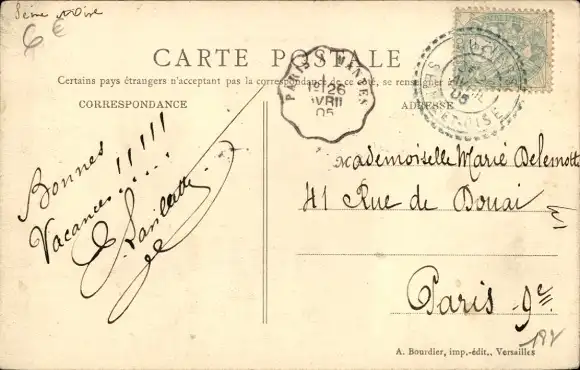 Seine et Oise
6€
CARTE POSTALE
Certains pays étrangers n'acceptant pas la correspondance de ce côté, se renseigner
CORRESPONDANCE
ADRESSE
PARIS A MANTES
1º 26
AVRIL
05
AVRIL
05
ET-OISE
Bonnes
Vacances!!!!!
Mademoiselle Marie Delemotte
41 Rue de Douai
Paris 9e.
A. Bourdier, imp.-édit., Versailles